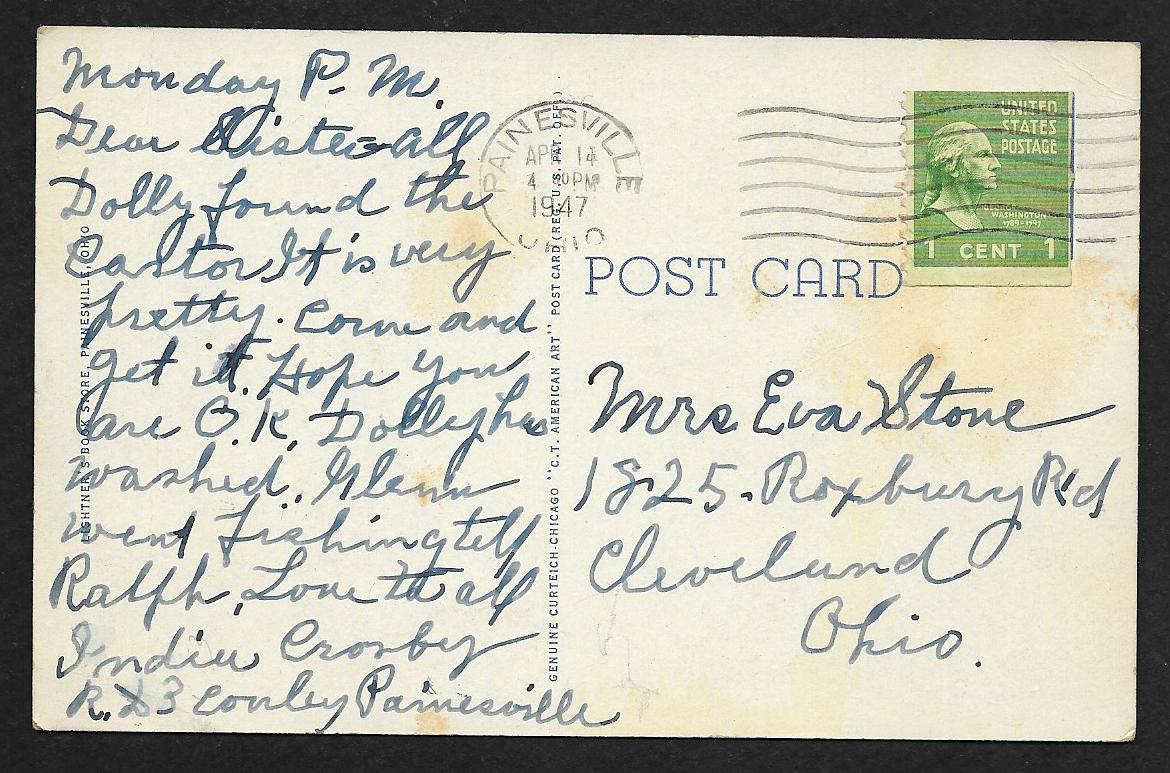 Monday P. M.
Dear Sister & all
Dolly found the
Castor. It is very
pretty. Come and
get it. Hope you
are O.K. Dolly has
washed. Glenn
went fishing tell
Ralph. Love to all
India Crosby
R. D3 Conley Painesville
LIGHTNER'S BOOK STORE, PAINESVILLE, OHIO
GENUINE CURTEICH-CHICAGO "C.T. AMERICAN ART" POST CARD (REG. U.S. PAT. OFF.)
PAINESVILLE
APR 14
4 PM
1947
OHIO
UNITED
STATES
POSTAGE
WASHINGTON
1789-1797
1 CENT 1
POST CARD
Mrs Eva Stone
1825. Roxbury Rd
Cleveland
Ohio.